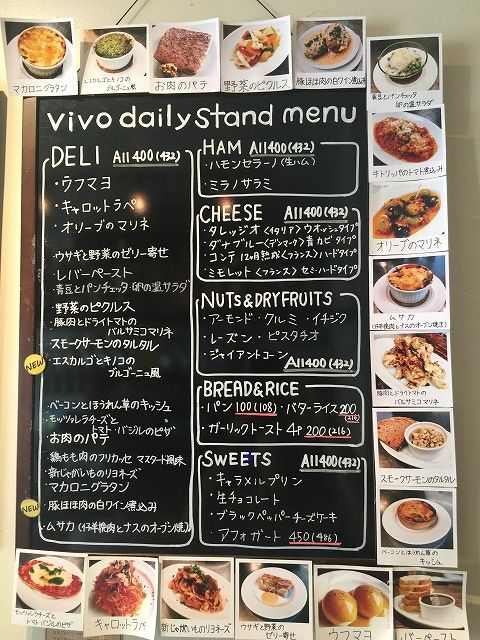 マカロニグラタン
エスカルゴとキノコの
ブルゴーニュ風
お肉のパテ
野菜のピクルス
豚ほほ肉の白ワイン煮込み
青豆とパンチェッタ
卵の温サラダ
牛トリッパのトマト煮込み
オリーブのマリネ
ムサカ
(仔羊挽肉とナスのオーブン焼き)
豚肉とドライトマトの
バルサミコマリネ
スモークサーモンのタルタル
ベーコンとほうれん草の
キッシュ
vivo daily stand menu
DELI All 400(432)
・ウフマヨ
・キャロットラペ
・オリーブのマリネ
・ウサギと野菜のゼリー寄せ
・レバーペースト
・青豆とパンチェッタ・卵の温サラダ
・野菜のピクルス
・豚肉とドライトマトの
バルサミコマリネ
・スモークサーモンのタルタル
NEW
・エスカルゴとキノコの
ブルゴーニュ風
・ベーコンとほうれん草のキッシュ
・モッツァレラチーズと
トマト・バジルのピザ
・お肉のパテ
・鶏もも肉のフリカッセ マスタード風味
・新じゃがいものリヨネーズ
・マカロニグラタン
NEW
・豚ほほ肉の白ワイン煮込み
・ムサカ (仔羊挽肉とナスのオーブン焼)
HAM All 400(432)
・ハモンセラーノ(生ハム)
・ミラノサラミ
CHEESE All 400(432)
・タレッジオ〈イタリア〉ウオッシュタイプ
・ダナブルー〈デンマーク〉青カビタイプ
・コンテ 12ヶ月熟成〈フランス〉ハードタイプ
・ミモレット〈フランス〉セミ・ハードタイプ
NUTS&DRYFRUITS
・アーモンド・クルミ・イチジク
・レーズン・ピスタチオ
・ジャイアントコーン All 400(432)
BREAD&RICE
・パン 100(108)・バターライス 200
(216)
・ガーリックトースト 4P 200(216)
SWEETS All 400(432)
・キャラメルプリン
・生チョコレート
・ブラックペッパーチーズケーキ
・アフォガート 450(486)
モッツァレラチーズと
トマトバジルのピザ
キャロットラペ
新じゃがいものリヨネーズ
ウサギと野菜の
ゼリー寄せ
ウフマヨ
レバーペースト